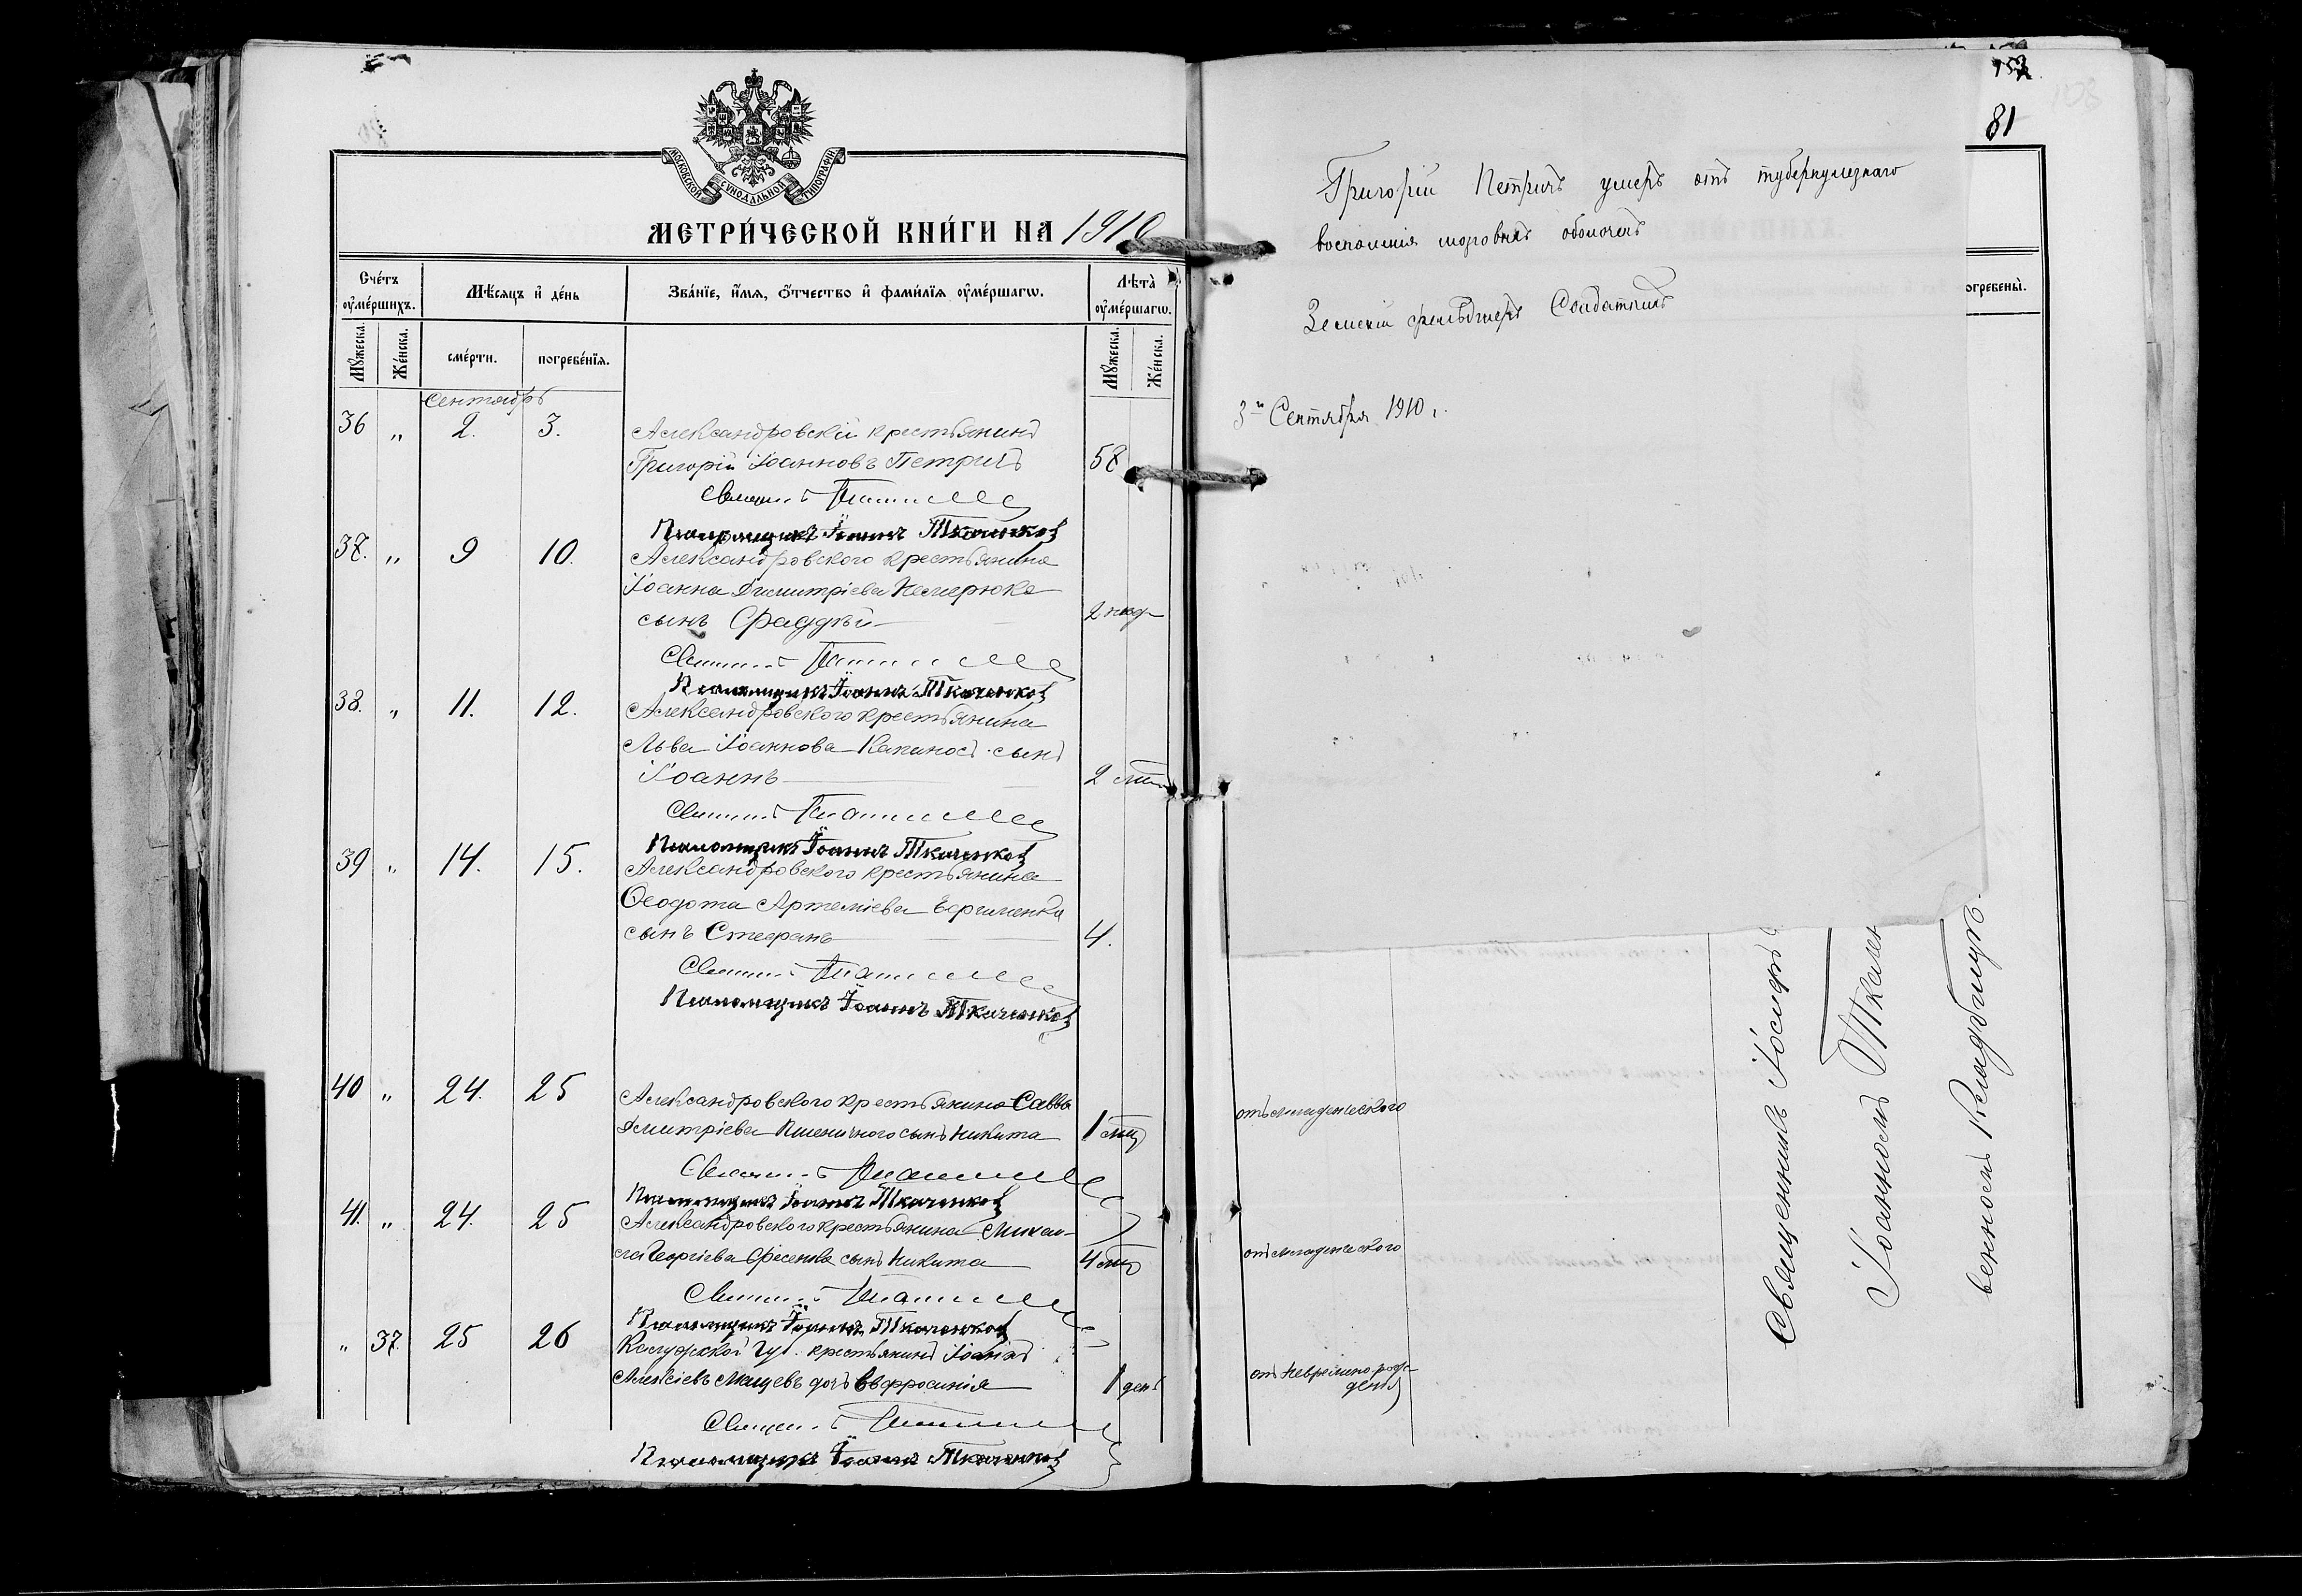 МОСКОВСКОЙ СУНОДАЛЬНОЙ ТИПОГРАФІИ
МЕТРИ́ЧЕСКОЙ КНИ́ГИ НА 1910
Сче́тъ оумéршихъ.
Мѣ́сяцъ и де́нь
Зва́нїе, и́мя, о́тчество и фами́лїя оуме́ршагѡ.
Лѣта̀ оуме́ршагѡ.
Мꙋжеска.
Же́нска.
сме́рти.
погребе́нїя.
Мꙋжеска.
Же́нска.
Сентябрь
36 „ 2. 3. Александровскій крестьянинъ
Григорій Іоанновъ Петричъ 58
Псаломщикъ Іоаннъ Ткаченко
37. „ 9 10. Александровского крестьянина
Іоанна Димитріева
сынъ Фаддѣй 2 нед
Псаломщикъ Іоаннъ Ткаченко
38. „ 11. 12. Александровского крестьянина
Льва Іоаннова Капиносъ сынъ
Іоаннъ 2
Псаломщикъ Іоаннъ Ткаченко
39 „ 14. 15. Александровского крестьянина
Ѳеодота Артеміева
сынъ Стефанъ 4.
Псаломщикъ Іоаннъ Ткаченко
40 „ 24. 25 Александровского крестьянина Саввы
Димитріева Пшеничного сынъ Никита 1 мѣс
Псаломщикъ Іоаннъ Ткаченко
41. „ 24. 25 Александровского крестьянина Михаи-
ла Георгіева Фесенка сынъ Никита 4 мѣс
Псаломщикъ Іоаннъ Ткаченко
„ 37. 25 26 Калужской Губ. крестьянинъ Іоаннъ
Алексіевъ Мащевъ дочь Евфросинія 1 день
Псаломщикъ Іоаннъ Ткаченко
81
Григорій Петричъ умеръ отъ туберкулезнаго
воспаленія мозговыхъ оболочекъ
Земскій фельдшеръ Солдаткинъ
3го Сентября 1910 г.
огребены̀.
отъ младенческого
отъ младенческого
отъ неврѣмено рож-
денія
Священникъ Іосифъ
Іоанномъ Ткачен
венномъ Кладбищѣ.